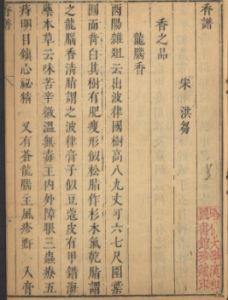 香譜
宋 洪芻
香之品
龍腦香
酉陽雜俎云出波律國樹高八九丈可六七尺圍葉
圓而背白其樹有肥瘦形似松脂作杉木氣乾脂謂
之龍腦香清脂謂之波律膏子似豆蔻皮有甲錯海
藥本草云味苦辛微溫無毒主內外障眼三蟲療五
痔明目鎮心祕精 又有蒼龍腦主風疹 入膏
香譜
哈佛大學漢和
圖書館珍藏印